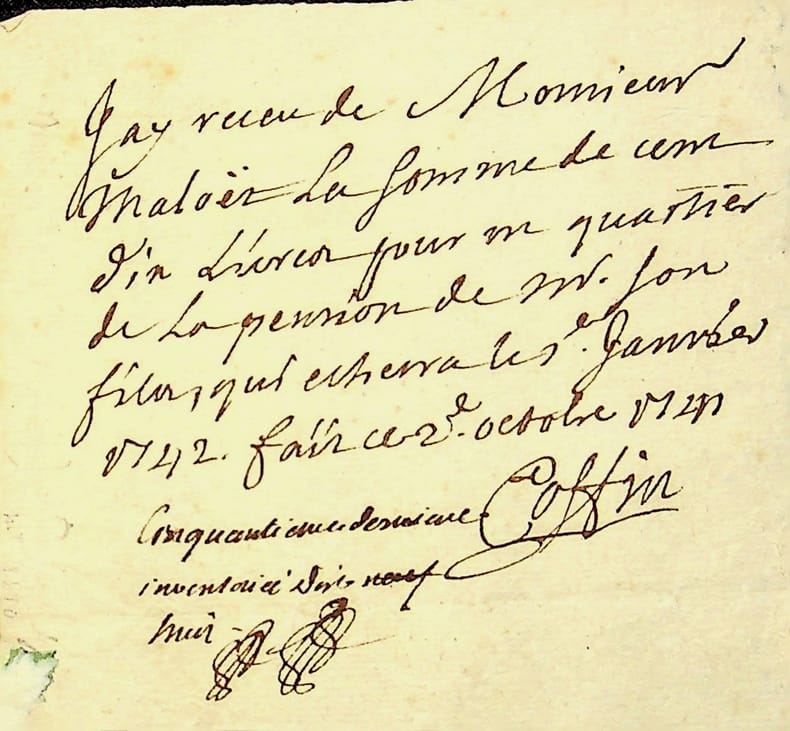 Jay receu de Monsieur
Maloët La somme de cent
dix Livres pour un quartier
de La pension de mr. son
fils, qui echerra le 1er. Janvier
1742. fait ce 2d. octobre 1741
Coffin
Cinquantieme derniere
inventorié dix neuf
huit